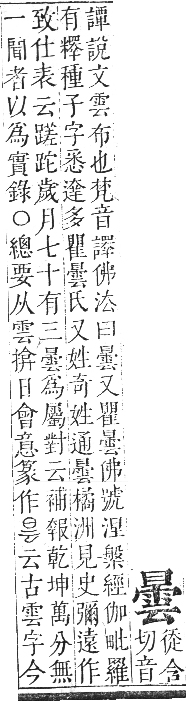 曇
徒含
切音
譚說文雲布也梵音譯佛法曰曇又瞿曇佛號涅槃經伽毗羅
有釋種子字悉達多瞿曇氏又姓奇姓通曇橘洲見史彌遠作
致仕表云蹉跎歲月七十有三曇為屬對云補報乾坤萬分無
一聞者以為實錄○總要从雲拚日會意篆作云古雲字今